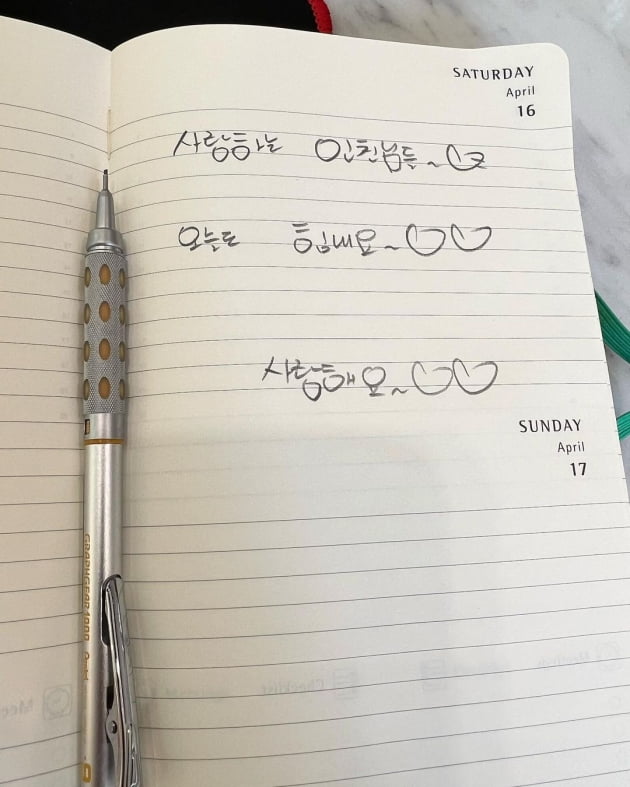 SATURDAY
April
16
사랑하는 인친님들~♡
오늘도 힘내요~♡♡
사랑해요~♡♡
SUNDAY
April
17
GRAPHGEAR 1000
Checklist